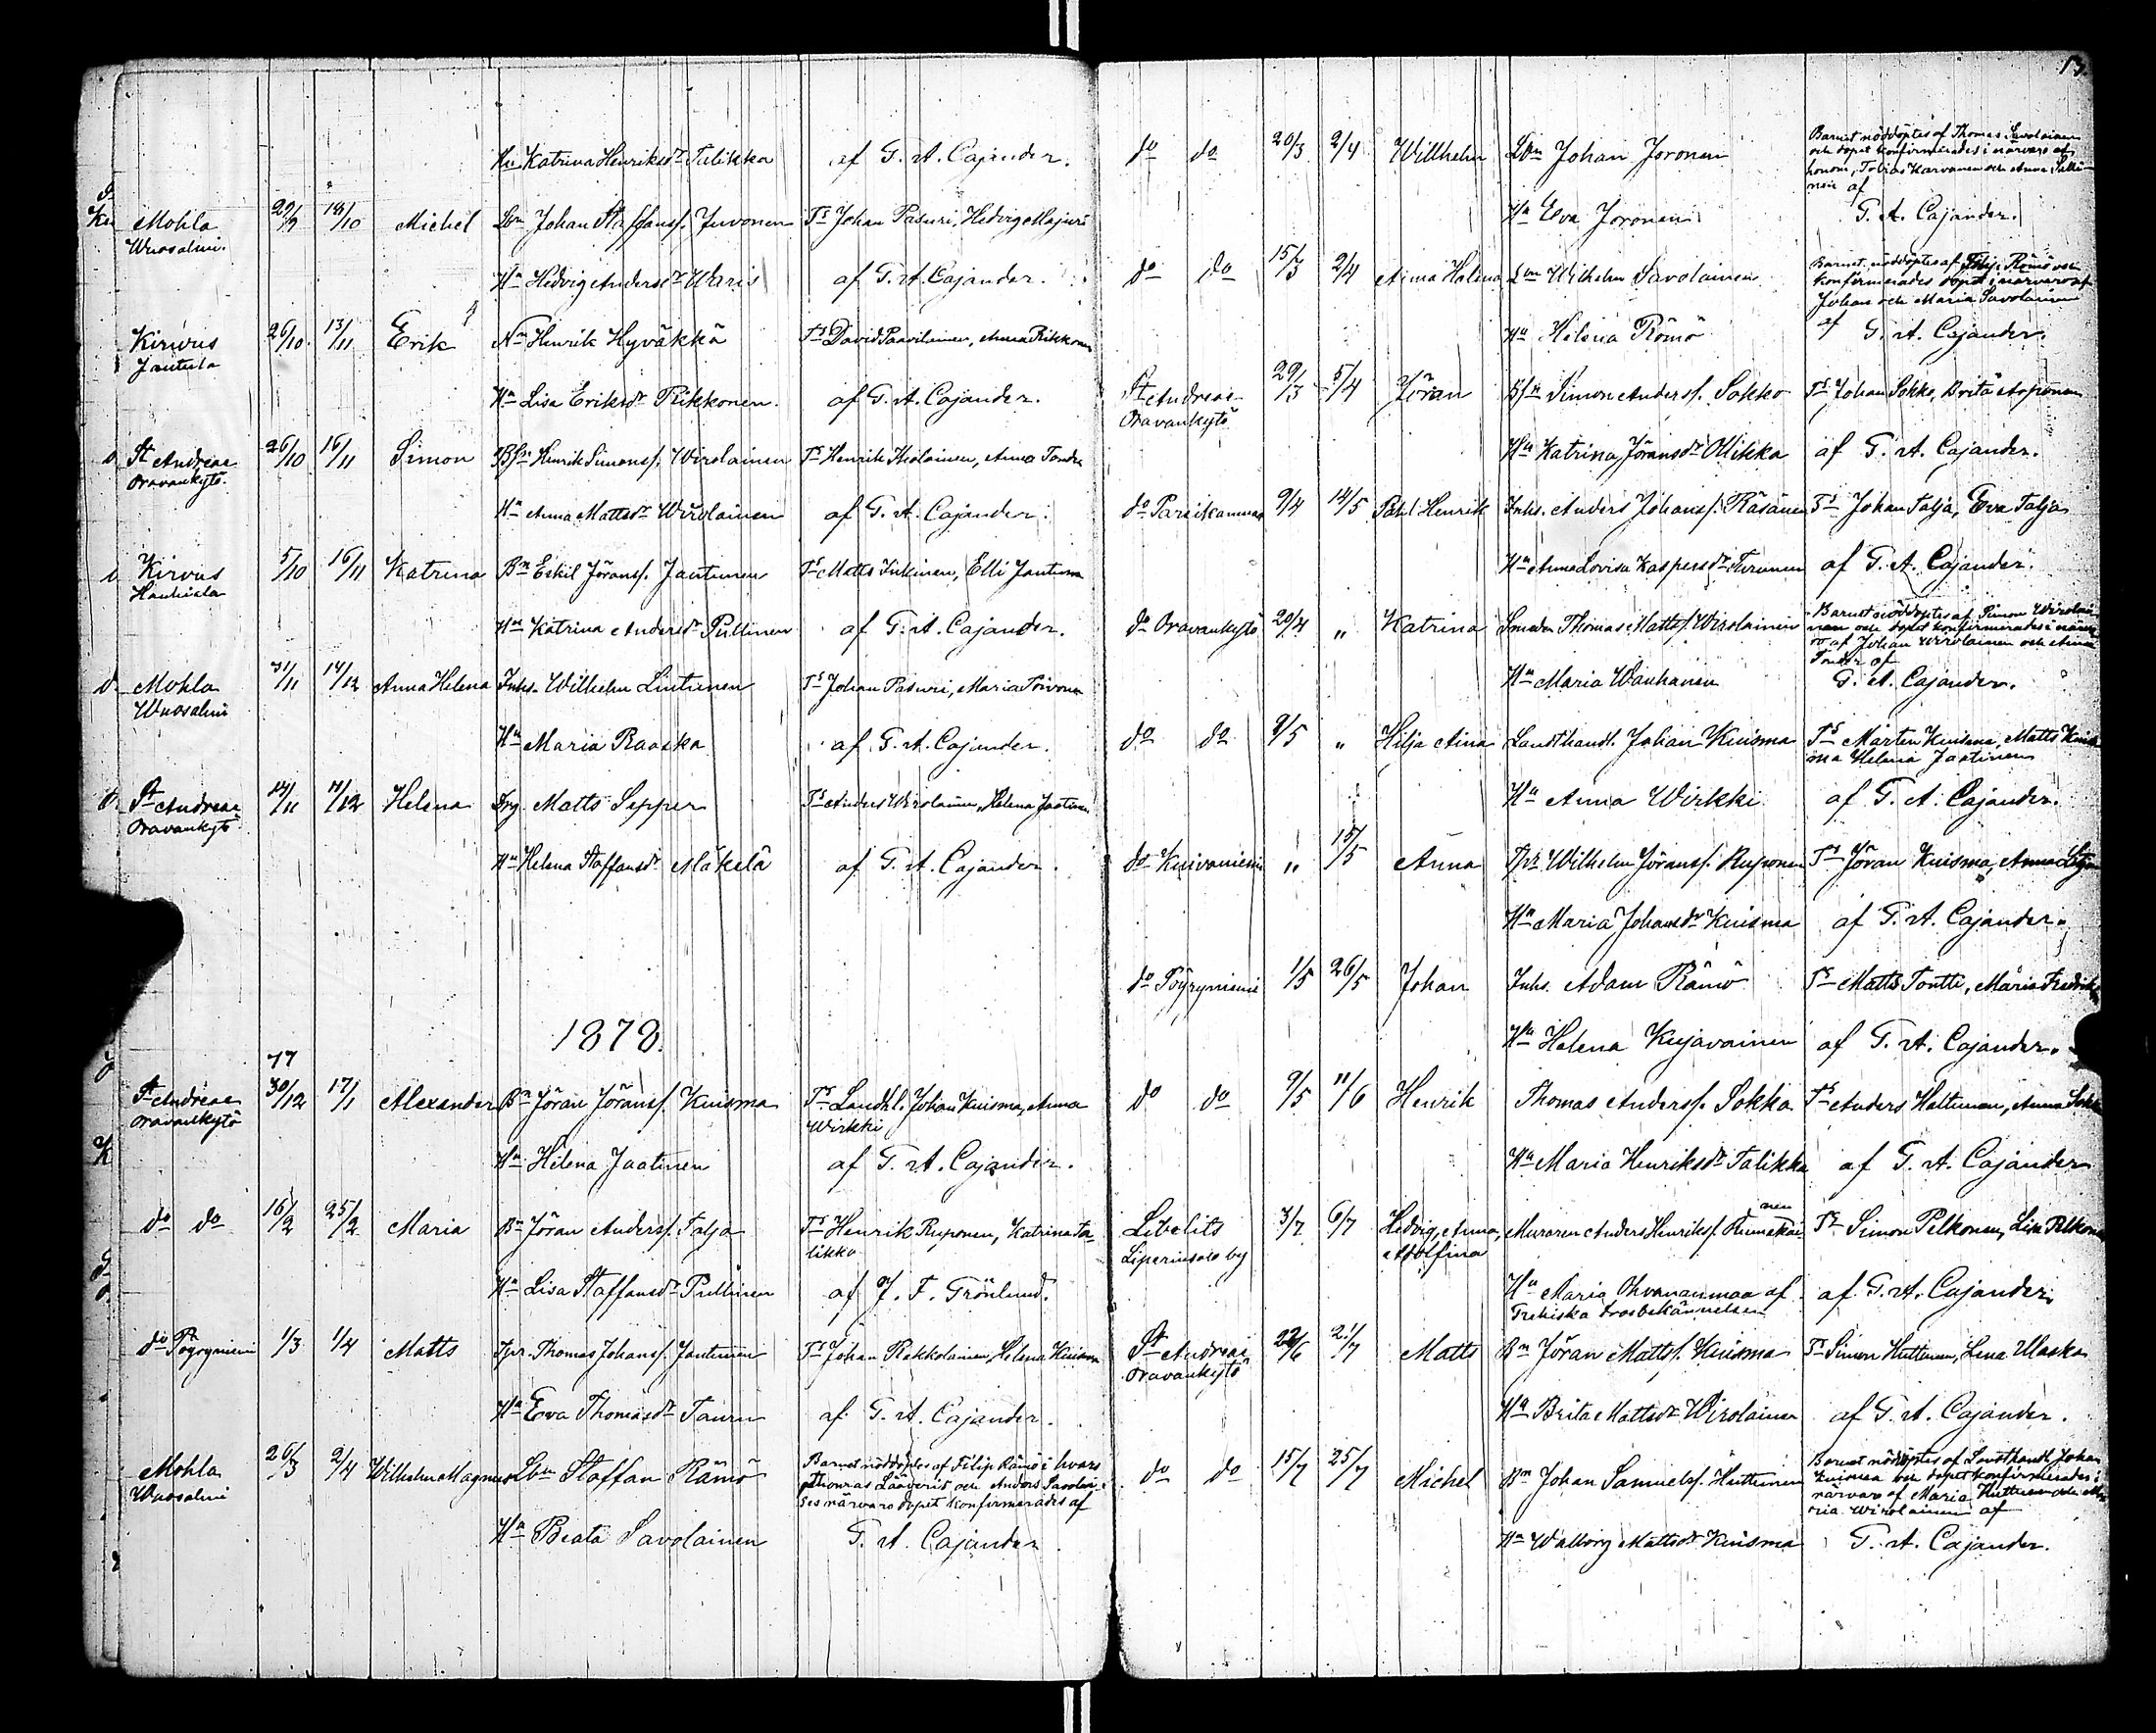 Hu Katrina Henriksdr Tulikka af G. A. Cajander.
Mohla 29/9 18/10 Michel Lbn Johan Staffansf. Juvonen Ts Johan Pasuri, Hedvig Majuri
Wuosalmi
Hu Hedvig Andersdr Waris af G. A. Cajander.
Kirvus 26/10 13/11 Erik Henrik Hyväkkä Ts David Paavilainen, Anna Rikkonen
Jantula
Hu Lisa Eriksdr Pikkonen. af G. A. Cajander.
St Andreae 26/10 16/11 Simon Bsn Henrik Simonsf. Wirolainen Ts Henrik Tholainen, Anna Tondre
Oravankytö
Hu Anna Mattsdr Wirolainen af G. A. Cajander.
Kirvus 5/10 16/11 Katrina Bn Eskil Jöransf. Jantunen Ts Matts Inkinen, Elli Jantunen
Hu Katrina Andersdr Pullinen af G. A. Cajander.
Mohla 14/12 Anna Helena Inhs. Wilhelm Lintunen Ts Johan Pasuri, Maria Toivonen
Wuosalmi
Hu Maria Raaska af G. A. Cajander.
St Andreae Helena Drg. Matts Sepper Ts Anders Wirolainen, Helena Jaatinen
Oravankytö
Hu Helena Staffansdr Mäkelä af G. A. Cajander.
1878.
77
St Andreae 30/12 17/1 Alexander Bn Jöran Jöransf. Kuisma Ts Landhl. Johan Kuisma, Anna
Oravankytö Wirkki
Hu Helena Jaatinen af G. A. Cajander.
do do 16/2 25/2 Maria Bn Jöran Andersf. Talja Ts Henrik Ruponen, Katrina Ta-
likka
Hu Lisa Staffansdr Pullinen af J. F. Grönlund.
do Pöyryniemi 1/3 1/4 Matts Tpr. Thomas Johansf. Jantunen Ts Johan Rekkolainen, Helena Kuisma
Hu Eva Thomasdr Tauru af G. A. Cajander.
Mohla 26/3 2/4 Wilhelm Magnus Lbn Staffan Rämö Barnet nöddöptes af Filip Rämö i hvars
Wuosalmi och Anders Savolai-
ses närvaro dopet konfirmerades af
Hu Beata Savolainen G. A. Cajander
13.
do do 20/3 2/4 Willhelm Lbn Johan Joronen Barnet nöddöptes af Thomas Savolainen
och dopet konfirmerades i närvaro af
honom, Tobias Karvanen och Anna Salli-
nen af
Hu Eva Joronen G. A. Cajander.
do do 15/3 2/4 Anna Halena Lbn Wilhelm Savolainen Barnet nöddöptes af Filip Rämö och
konfirmerades dopet i närvaro af
Johan och Maria Savolainen
Hu Helena Rämö af G. A. Cajander.
St Andreae 29/3 5/4 Jöran Bsn Simon Andersf. Sokko Ts Johan Sokko, Brita Aoponen
Oravankytö
Hu Katrina Jöransdr Ollikka af G. A. Cajander.
do Pareikamaa 9/4 12/5 Pahl Henrik Inhs. Anders Johansf. Räsänen Ts Johan Talja, Eva Talja
Hu Anna Lovisa Kaspersdr Turunen af G. A. Cajander.
do Oravankytö 20/4 „ Katrina Smeden Thomas Mattsf. Wirolainen Barnet nöddöptes af Simon Wirolai-
nen och dopet konfirmerades i närva-
ro af Johan Wirolainen och Anna
Tondre af
Hu Maria Wanhanen G. A. Cajander.
do do 9/5 „ Hilja Aina Landthandl. Johan Kuisma Ts Mårten Kuisma, Matts Kuis-
ma Helena Jaatinen
Hu Anna Wirkki af G. A. Cajander.
do Kuivaniemi „ 15/5 Anna Tpr. Wilhelm Jöransf. Ruponen Ts Jöran Kuisma, Anna
Hu Maria Johansdr Kuisma af G. A. Cajander.
do Pöyryniemi 1/5 26/5 Johan Inhs. Adam Rämö Ts Matts Tontti, Maria
Hu Helena Kujavainen af G. A. Cajander.
do do 9/5 11/6 Henrik Thomas Andersf. Sokka Ts Anders Haltunen, Anna Sokka
Hu Maria Henriksdr Talikka af G. A. Cajander
Libelits 3/7 6/7 Hedvig, Anna, Muraren Anders Henriksf. Rumakai-nen Ts Simon Pelkonen, Lisa Pelkonen
Liperinsalo by Adolfina
Hu Maria Ohvanamaa af af G. A. Cajander.
Grekiska trosbekännelsen
St Andreae 22/6 21/7 Matts Bn Jöran Mattsf. Kuisma Ts Simon Huttunen, Lena Ulaska
Oravankytö
Hu Brita Mattsdr Wirolainen af G. A. Cajander.
do do 15/7 25/7 Michel Bn Johan Samuelsf. Huttunen Barnet nöddöptes af Landthandl. Johan
Kuisma och dopet konfirmerades i
närvaro af Maria Huttunen och Ma-
ria Wirolainen af
Hu Walborg Mattsdr Kuisma G. A. Cajander.